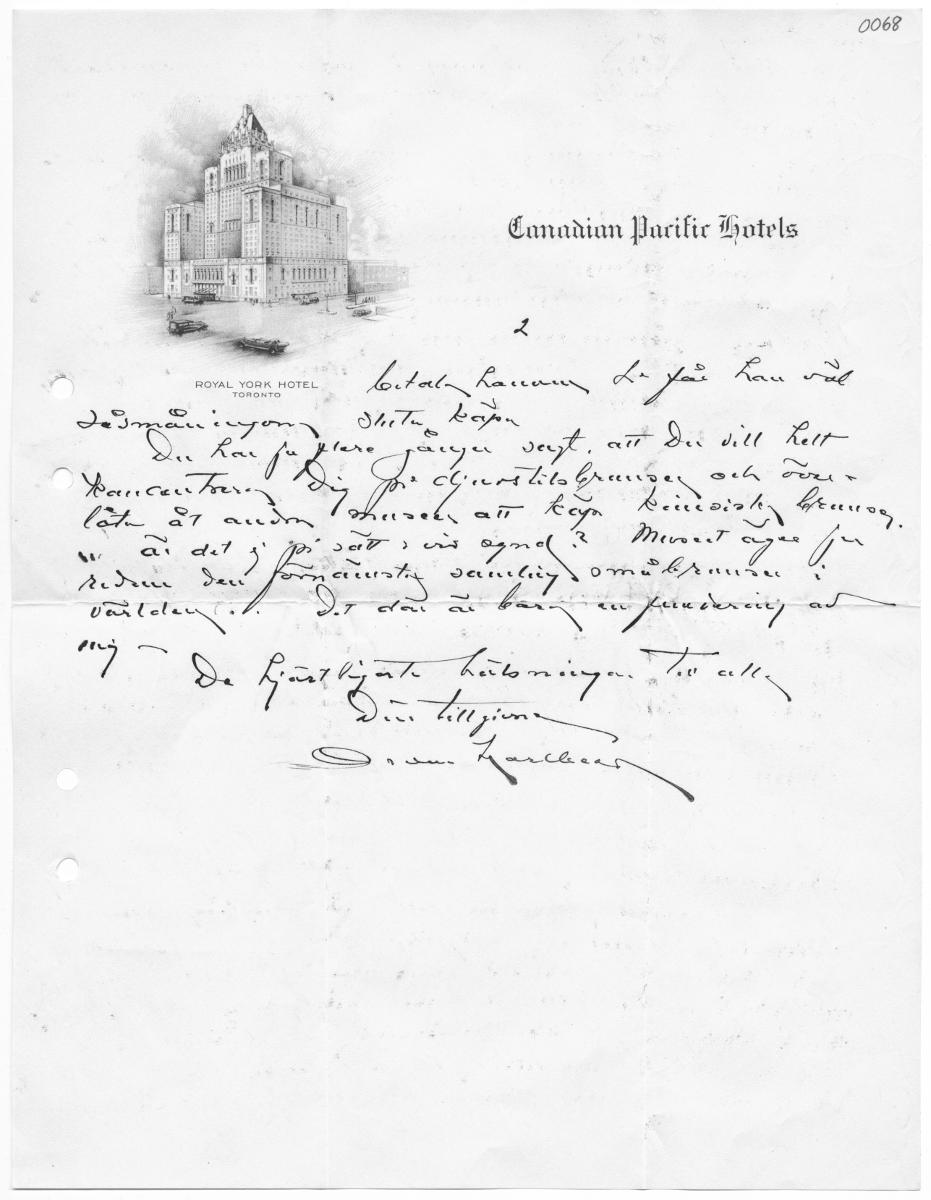 0068
Canadian Pacific Hotels
2
ROYAL YORK HOTEL
TORONTO
betala honom så får han väl
småningom sluta köpa
Du har ju flere gånger sagt, att Du vill helt
koncentrera Dig på djurstilsbronser och över-
låta åt andra museer att köpa kinesiska bronser.
är det ej på sätt o vis synd? Museet äger ju
redan den förnämsta samling småbronser i
världen. Det där är bara en fundering av
mig —
De hjärtligaste hälsningar till alla
Din tillgivne
Orvar Karlbeck